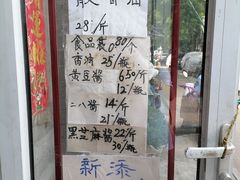 散香油
28/斤
食品袋80/个
香油 25/瓶
黄豆酱 650/斤
12/瓶
二八酱 14/斤
21/瓶
黑芝麻酱 22/斤
30/瓶
新添